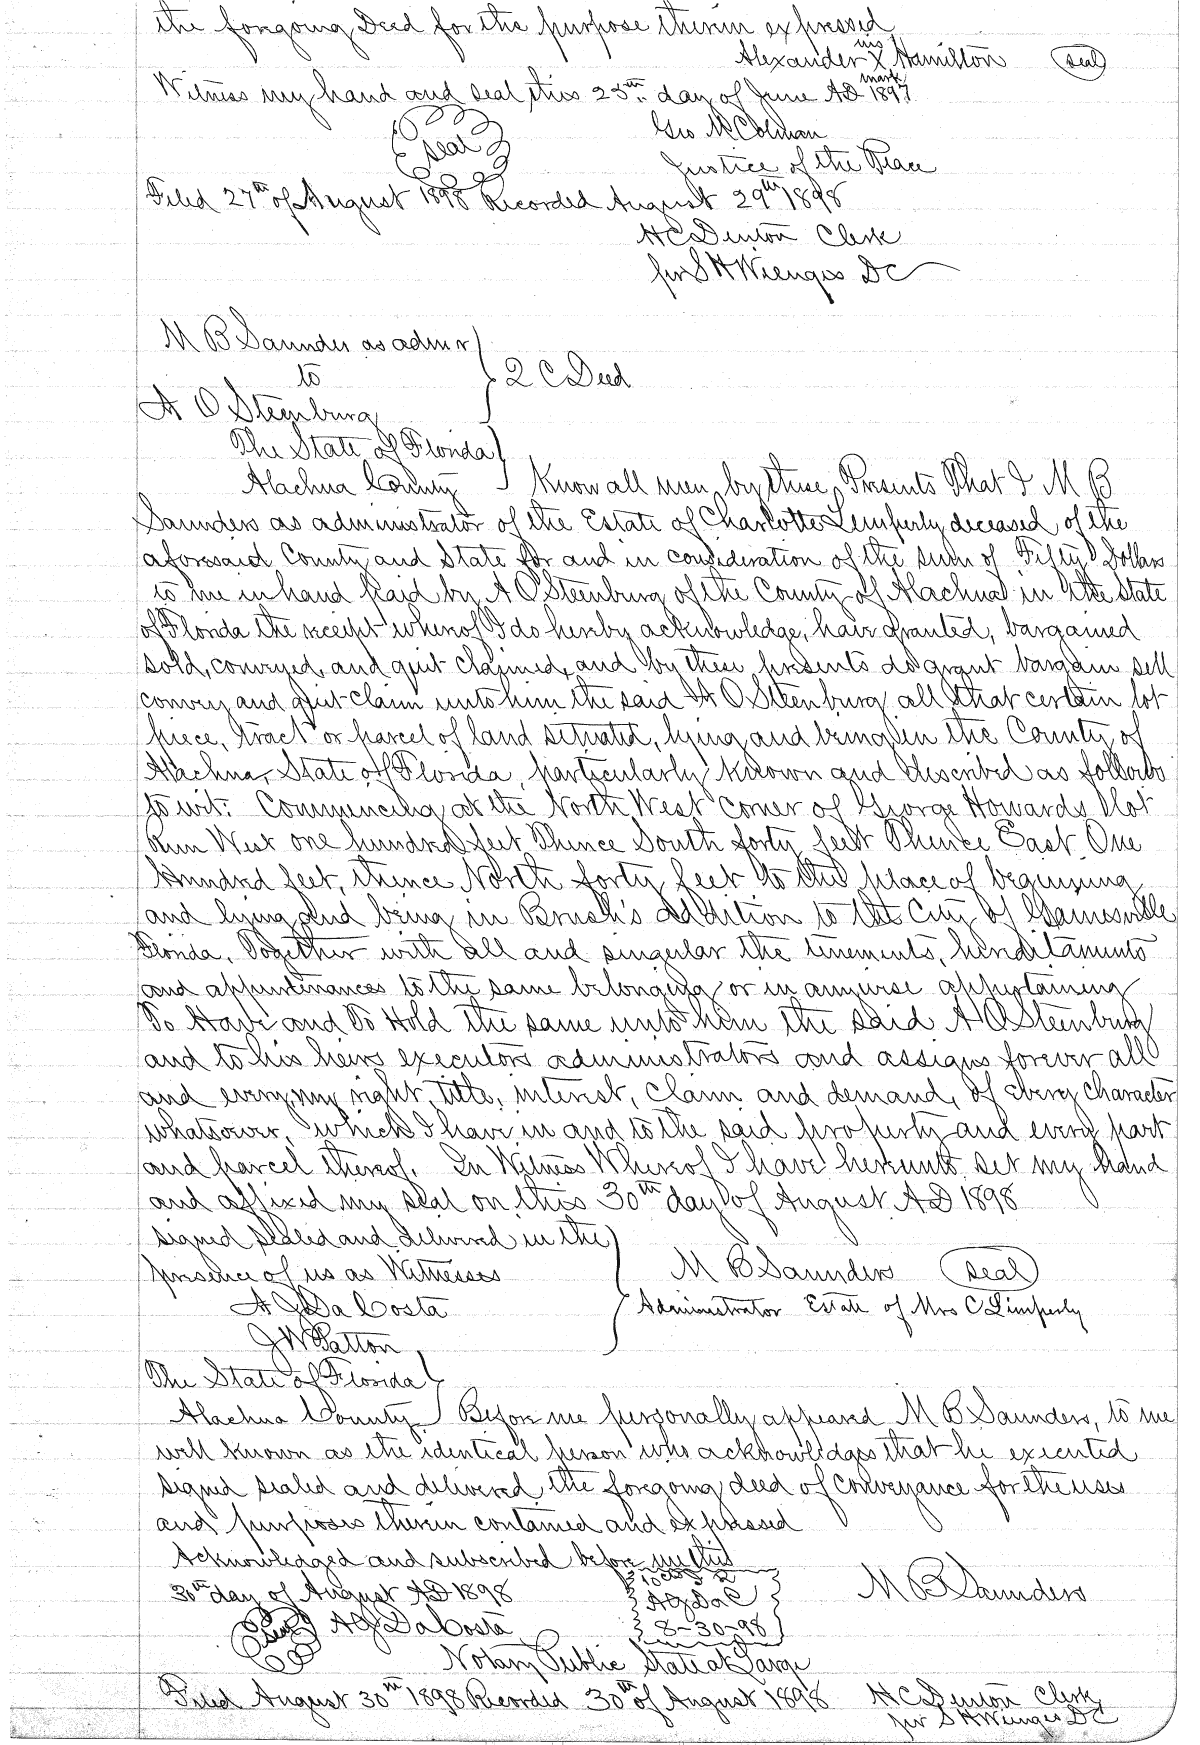 the foregoing Deed for the purpose therin expressed
Alexander his X mark Hamilton (seal)
Witness my hand and seal, this 25th day of June AD 1897
Geo M Colman
(seal)
Justice of the Peace
Filed 27th of August 1898 Recorded August 29th 1898
H C Denton Clerk
per S H Wienges DC
M B Saunders as admr
to
A O Steenburg
Q C Deed
The State of Florida
Alachua County Know all men by these Presents That I M B
Saunders as administrator of the Estate of Charlotte Limperly deceased of the
aforesaid County and State for and in consideration of the sum of Fifty Dollars
to me in hand paid by A O Steenburg of the County of Alachua in the State
of Florida the receipt wherof I do hereby acknowledge, have granted, bargained
sold, conveyed, and quit claimed, and by these presents do grant bargain sell
convey and quit claim unto him the said A O Steenburg all that certain lot
piece, tract or parcel of land situated, lying and being in the County of
Alachua, State of Florida, particularly known and described as follows
to wit: Commencing at the North West corner of George Howards Plot
Run West one hundred feet Thence South forty feet Thence East One
Hundred feet, thence North forty feet to the place of beginning
and lying and being in Brush's addition to the City of Gainesville
Florida. Together with all and singular the tenements, hereditaments
and appurtenances to the same belonging or in anywise appertaining
To Have and To Hold the same unto him the said A O Steenburg
and to his heirs executors administrators and assigns forever all
and every my right, title, interest, claim and demand, of every character
whatsoever, which I have in and to the said property and every part
and parcel thereof. In Witness Whereof I have hereunto set my hand
and affixed my seal on this 30th day of August AD 1898
signed sealed and delivered in the
presence of us as Witnesses
M B Saunders (seal)
A J DaCosta
Administrator Estate of Mrs C Limperly
J W Patton
The State of Florida
Alachua County Before me personally appeared M B Saunders, to me
well known as the identical person who acknowledges that he executed
signed sealed and delivered the foregoing deed of conveyance for the uses
and purposes therin contained and expressed
Acknowledged and subscribed before me this
30th day of August AD 1898
A J DaC
8-30-98
M B Saunders
(seal) A J DaCosta
Notary Public State at Large
Filed August 30th 1898 Recorded 30th of August 1898 H C Denton Clerk
per S H Wienges DC